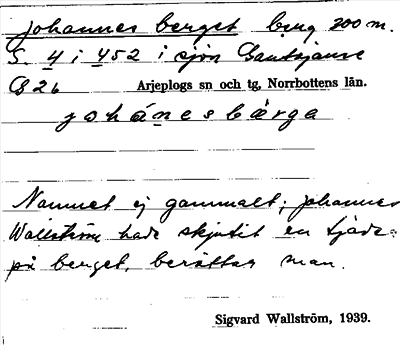 Johannes berget berg 200 m.
S. 4 i 452 i sjön
B 26 Arjeplogs sn och tg, Norrbottens län.
johánesbärga
Namnet ej gammalt; Johannes
Wallström hade skjutit en tjäder
på berget, berättar man.
Sigvard Wallström, 1939.